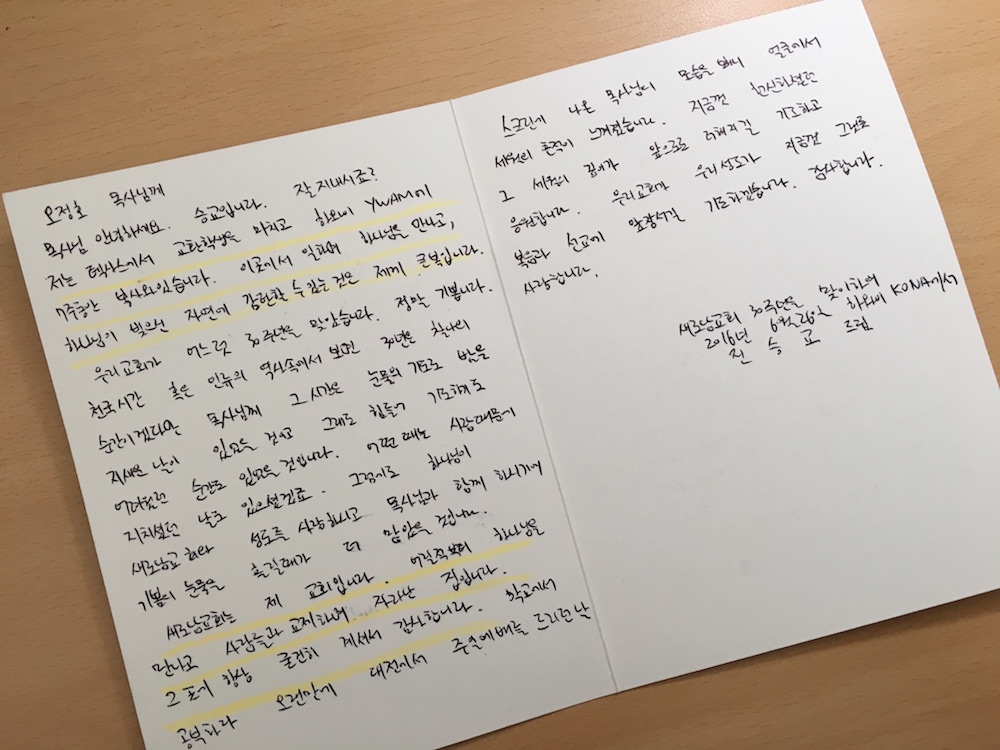 오정호 목사님께
목사님 안녕하세요. 승교입니다. 잘 지내시죠?
저는 텍사스에서 교환학생을 마치고 하와이 YWAM에
7주동안 봉사와있습니다. 이곳에서 일하며 하나님을 만나고,
하나님이 빚으신 자연에 감탄할 수 있는 것은 제게 큰 복입니다.
우리 교회가 어느덧 30주년을 맞았습니다. 정말 기쁩니다.
천국 시간 혹은 인류의 역사속에서 보면 30년은 찰나의
순간이겠다만 목사님께 그 시간은 눈물의 기도로 밤을
지새운 날이 있으실 것이고 그래도 힘들어 기도하기도
어려웠던 순간도 있으실 것입니다. 어떤때는 사람때문에
지치셨던 날도 있으셨겠죠. 그럼에도 하나님이
새로남교회와 성도를 사랑하시고 목사님과 함께 하시기에
기쁨의 눈물을 흘릴때가 더 많았을 것입니다.
새로남교회는 제 교회입니다. 어릴적부터 하나님을
만나고 사람들과 교제하며 자라난 집입니다.
그 곳에 항상 굳건히 계셔서 감사합니다. 학교에서
공부하다 오랜만에 대전에서 주일예배를 드리던 날
스크린에 나온 목사님의 모습을 보니 얼굴에서
세월의 흔적이 느껴졌습니다. 지금껏 헌신하셨던
그 세월의 깊이가 앞으로도 더해지길 기도하고
응원합니다. 우리교회가 우리성도가 지금껏 그랬듯
복음과 선교에 앞장서길 기도하겠습니다. 감사합니다.
사랑합니다.
새로남교회 30주년을 맞이하여
2016년 6월 26일 하와이 KONA에서
전 승 교 드림